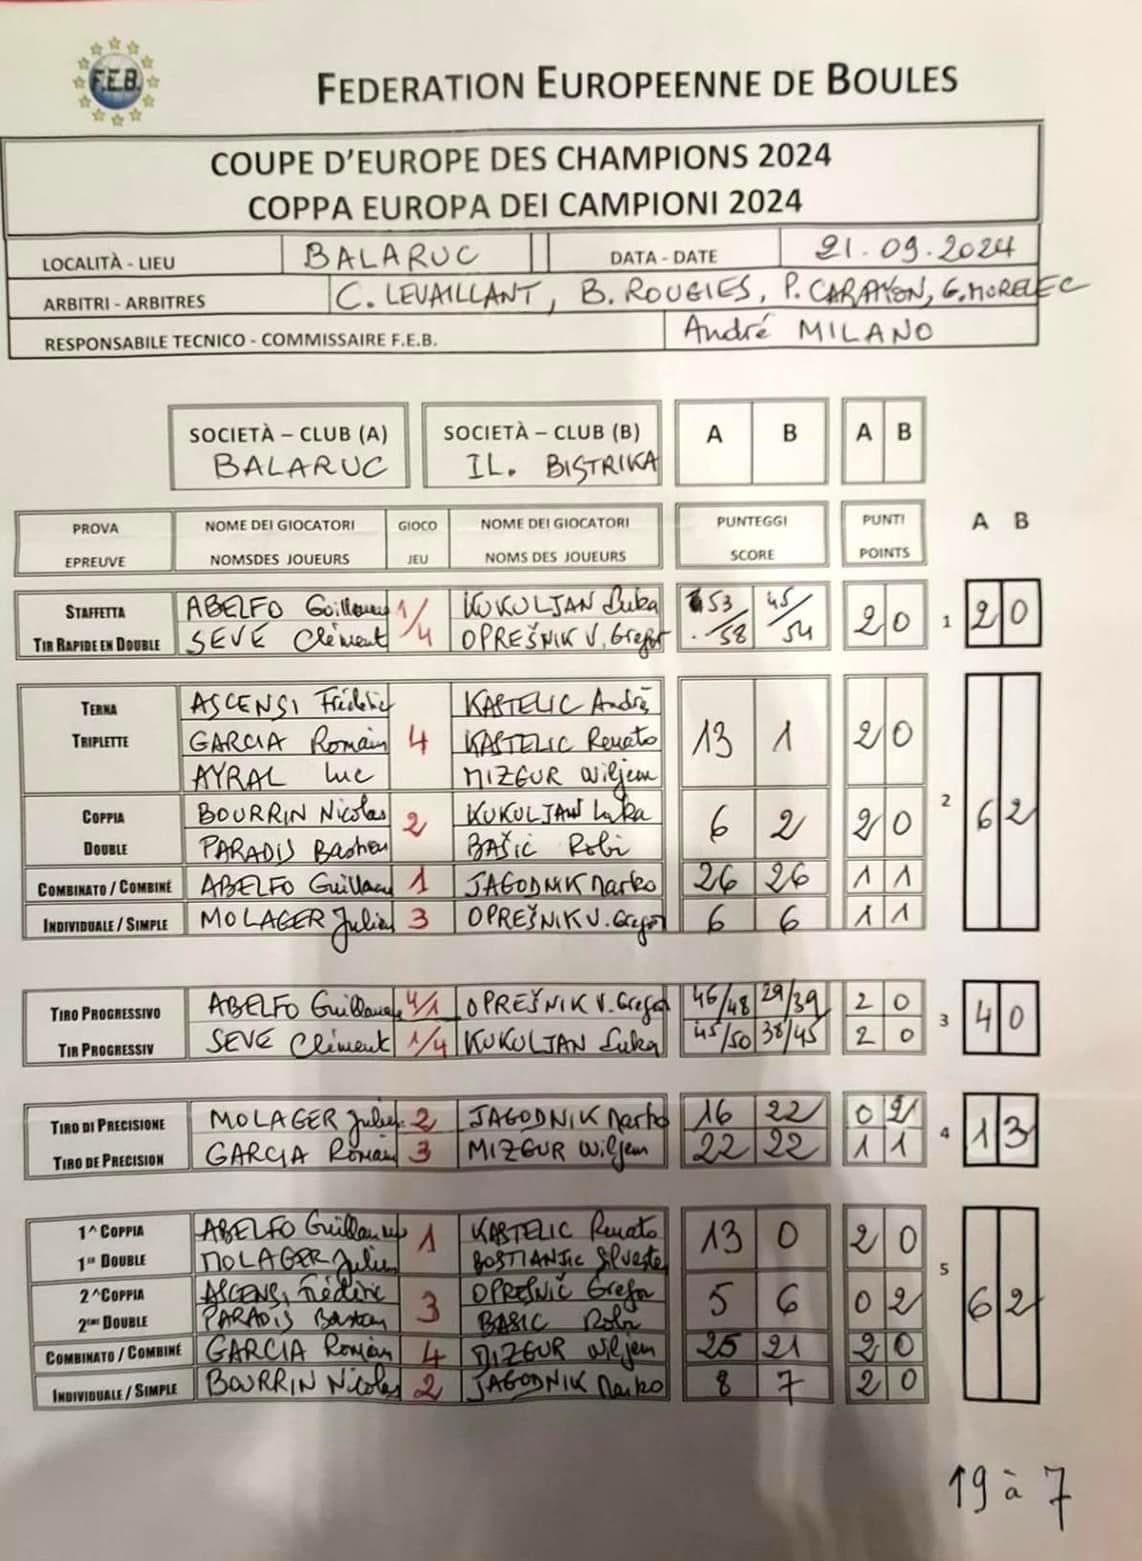 F.E.B.
FEDERATION EUROPEENNE DE BOULES
COUPE D'EUROPE DES CHAMPIONS 2024
COPPA EUROPA DEI CAMPIONI 2024
LOCALITÀ - LIEU BALARUC DATA - DATE 21.09.2024
ARBITRI - ARBITRES C. LEVAILLANT, B. ROUGIES, P. CARAYON, G. MORELEC
RESPONSABILE TECNICO - COMMISSAIRE F.E.B. André MILANO
SOCIETÀ – CLUB (A) SOCIETÀ – CLUB (B) A B A B
BALARUC IL. BISTRIKA
PROVA NOME DEI GIOCATORI GIOCO NOME DEI GIOCATORI PUNTEGGI PUNTI A B
EPREUVE NOMSDES JOUEURS JEU NOMS DES JOUEURS SCORE POINTS
STAFFETTA ABELFO Guillaume 1/4 KUKULJAN Luka 53/58 45/54 2 0 1 2 0
TIR RAPIDE EN DOUBLE SEVE Clément OPREŠNIK V. Gregor
TERNA ASCENSI Frédéric KASTELIC André
TRIPLETTE GARCIA Romain 4 KASTELIC Renato 13 1 2 0
AYRAL Luc MIZGUR Wiljem
COPPIA BOURRIN Nicolas 2 KUKULJAN Luka 6 2 2 0 2 6 2
DOUBLE PARADIS Bastien BAŠIC Robi
COMBINATO / COMBINÉ ABELFO Guillaume 1 JAGODNIK Marko 26 26 1 1
INDIVIDUALE / SIMPLE MOLAGER Julien 3 OPREŠNIK V. Gregor 6 6 1 1
TIRO PROGRESSIVO ABELFO Guillaume 4/1 OPREŠNIK V. Gregor 46/48 29/39 2 0 3 4 0
TIR PROGRESSIV SEVE Clément 1/4 KUKULJAN Luka 45/50 38/45 2 0
TIRO DI PRECISIONE MOLAGER Julien 2 JAGODNIK Marko 16 22 0 2 4 1 3
TIRO DE PRECISION GARCIA Romain 3 MIZGUR Wiljem 22 22 1 1
1^ COPPIA ABELFO Guillaume 1 KASTELIC Renato 13 0 2 0
1ER DOUBLE MOLAGER Julien BOSTIANJIC Silvester
2^COPPIA ASCENSI Frédéric 3 OPREŠNIC Gregor 5 6 0 2 5 6 2
2EME DOUBLE PARADIS Bastien BASIC Robi
COMBINATO / COMBINÉ GARCIA Romain 4 MIZGUR Wiljem 25 21 2 0
INDIVIDUALE / SIMPLE BOURRIN Nicolas 2 JAGODNIK Marko 8 7 2 0
19 à 7